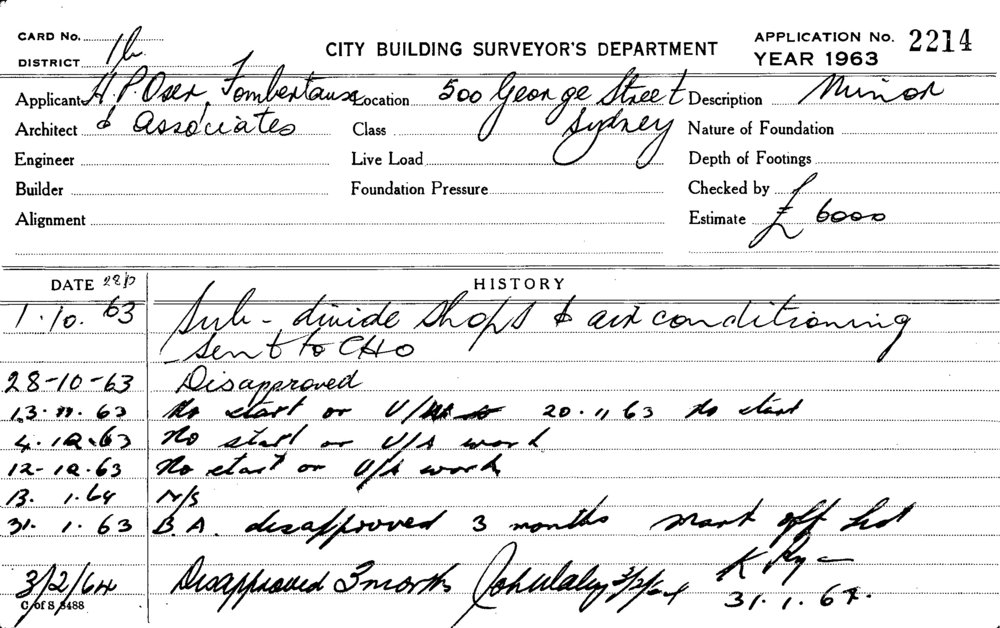 CARD No.
DISTRICT 1b
CITY BUILDING SURVEYOR'S DEPARTMENT
APPLICATION No. 2214
YEAR 1963
Applicant H.P. Oser, Fombertaux Location 500 George Street Description Minor
Architect & Associates Class Sydney Nature of Foundation
Engineer Live Load Depth of Footings
Builder Foundation Pressure Checked by
Alignment Estimate £ 6000
DATE HISTORY
1.10.63 Sub-divide shops & air conditioning
Sent to CHO
28-10-63 Disapproved
13.11.63 No start or U/A 20.11.63 No start
4.12.63 No start or U/A work
12-12-63 No start or U/A work
13.1.64 N/S
31.1.63 B.A. disapproved 3 months mark off list
K
3/2/64 Disapproved 3 months
31.1.64.
C of S 8488